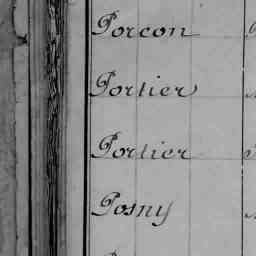 Porcon
Portier
Portier
Posny